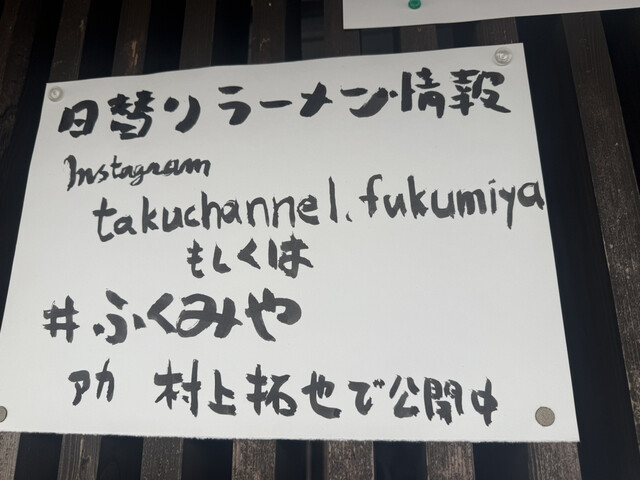 日替りラーメン情報
Instagram
takuchannel.fukumiya
もしくは
#ふくみや
アカ 村上拓也で公開中